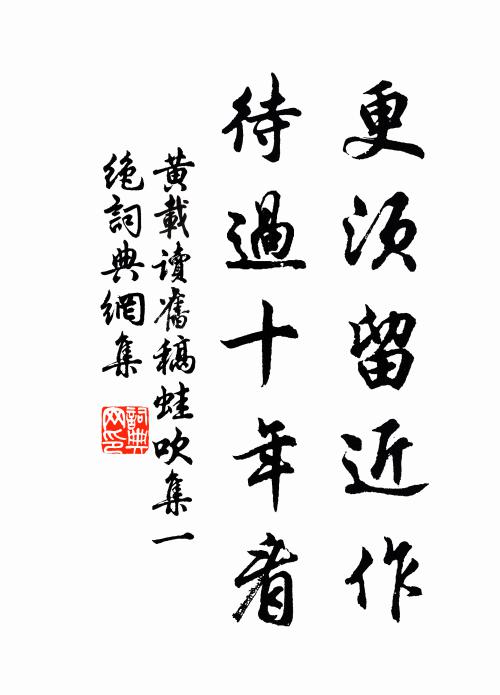 更須留近作
待過十年看
黃載讀舊稿蛙吹集一
絶詞典網集
詞典
网印